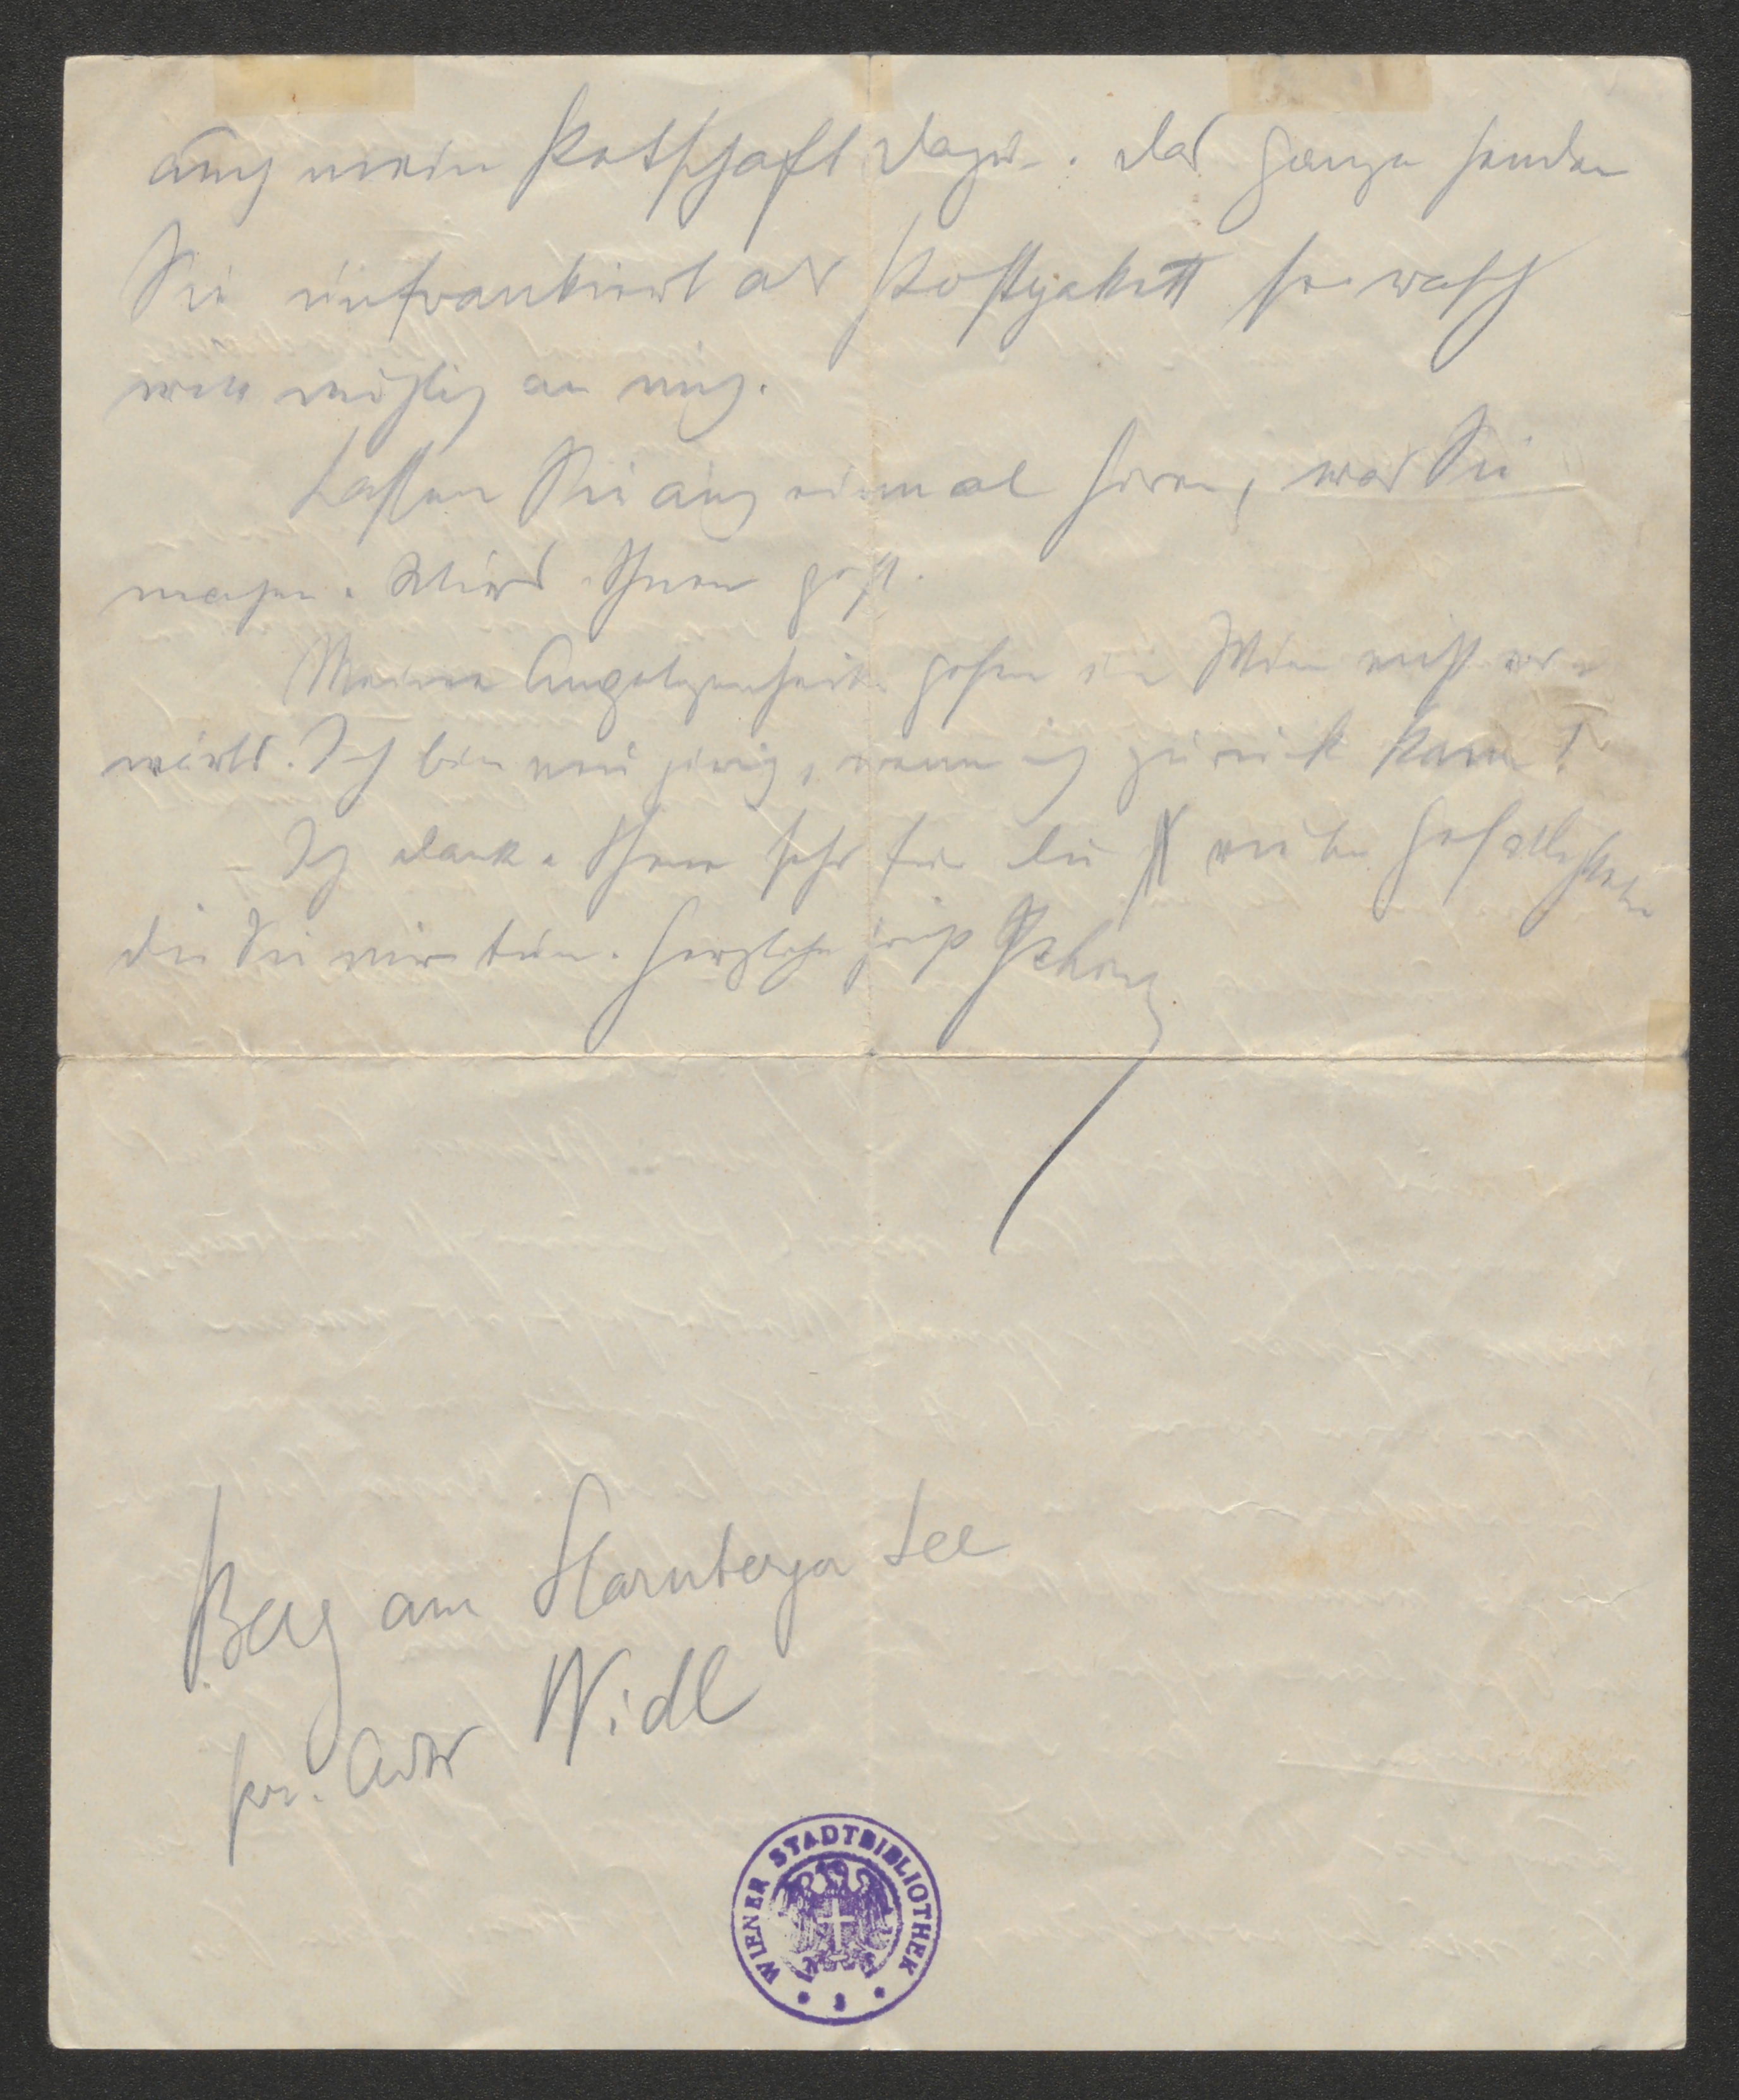 auch mein Petschaft dazu. Das ganze senden
Sie unfrankiert als Postpakett so rasch
wie möglich an mich.
Lassen Sie auch einmal hören, was Sie
machen. Wie's Ihnen geht.
Meine Angelegenheiten gehen in Wien nicht vor-
wärts. Ich bin neugierig, wann ich zurück kann!
Ich danke Ihnen sehr für die vielen Gefälligkeiten
die Sie mir tun. Herzlichen Gruß
Berg am Starnberger See
per. Adr Widl
WIENER STADTBIBLIOTHEK